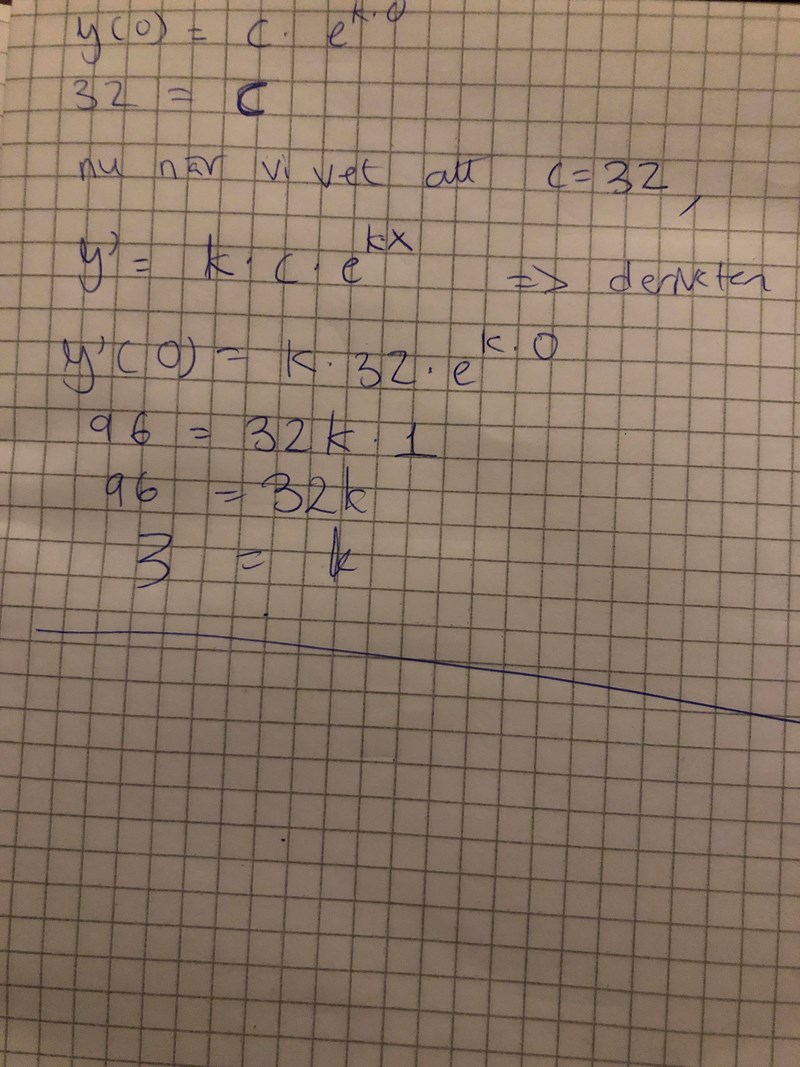 y(0) = C · e^k·0
32 = C
nu när vi vet att C = 32,
y' = k · C · e^kx => derivatan
y'(0) = k · 32 · e^k·0
96 = 32k · 1
96 = 32k
3 = k